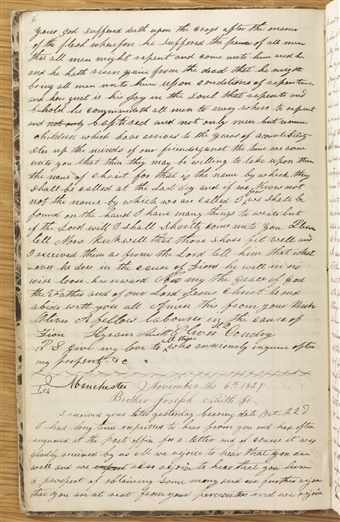 6
your god suffered death upon the cross after the manner
of the flesh wherefore he suffered the pains of all men
that all men might repent and come unto him and he
and he hath risen again from the dead that he might
bring all men unto him upon conditions of repentance
and how great is his joy in the soul that repents and
behold he commandeth all men to every where to repent
and not only baptised and not only men but women
Children which have arrived to the years of accountability
stir up the minds of our friends against the time we come
unto you that then they may be willing to take upon them
the name of Christ for that is the name by which they
shall be called at the Last day and if we know
not the name by which we are called I fear we shall be
found on the I have many things to write but
if the Lord will I shall shortly come unto you Please
tell Mrs Rockwell that those shoes fit well and
I received them as from the Lord tell him that what
ever he does in the cause of Zion he will in no
wise loose his reward Now may the grace of God
the Father and of our Lord Jesus Christ be and
abide with you all Amen this from your Unto
Fellow labourer in the cause of
Zion Hyram Smith Oliver Cowdery
P S give my love to all those who anxiously inquire after
my prosperity &c
Letter Manchester November the 6th 1829
Brother Joseph Smith Jr
I received your letter yesterday bearing date Oct 22d
I had long time expected to hear from you and had often
enquired at the post office for a letter and of course it was
gladly received by us all we rejoice to hear that you are
well and we also rejoice to hear that you have
a prospect of obtaining some money and we further rejoice
that you are at rest from your persecutors and we rejoice